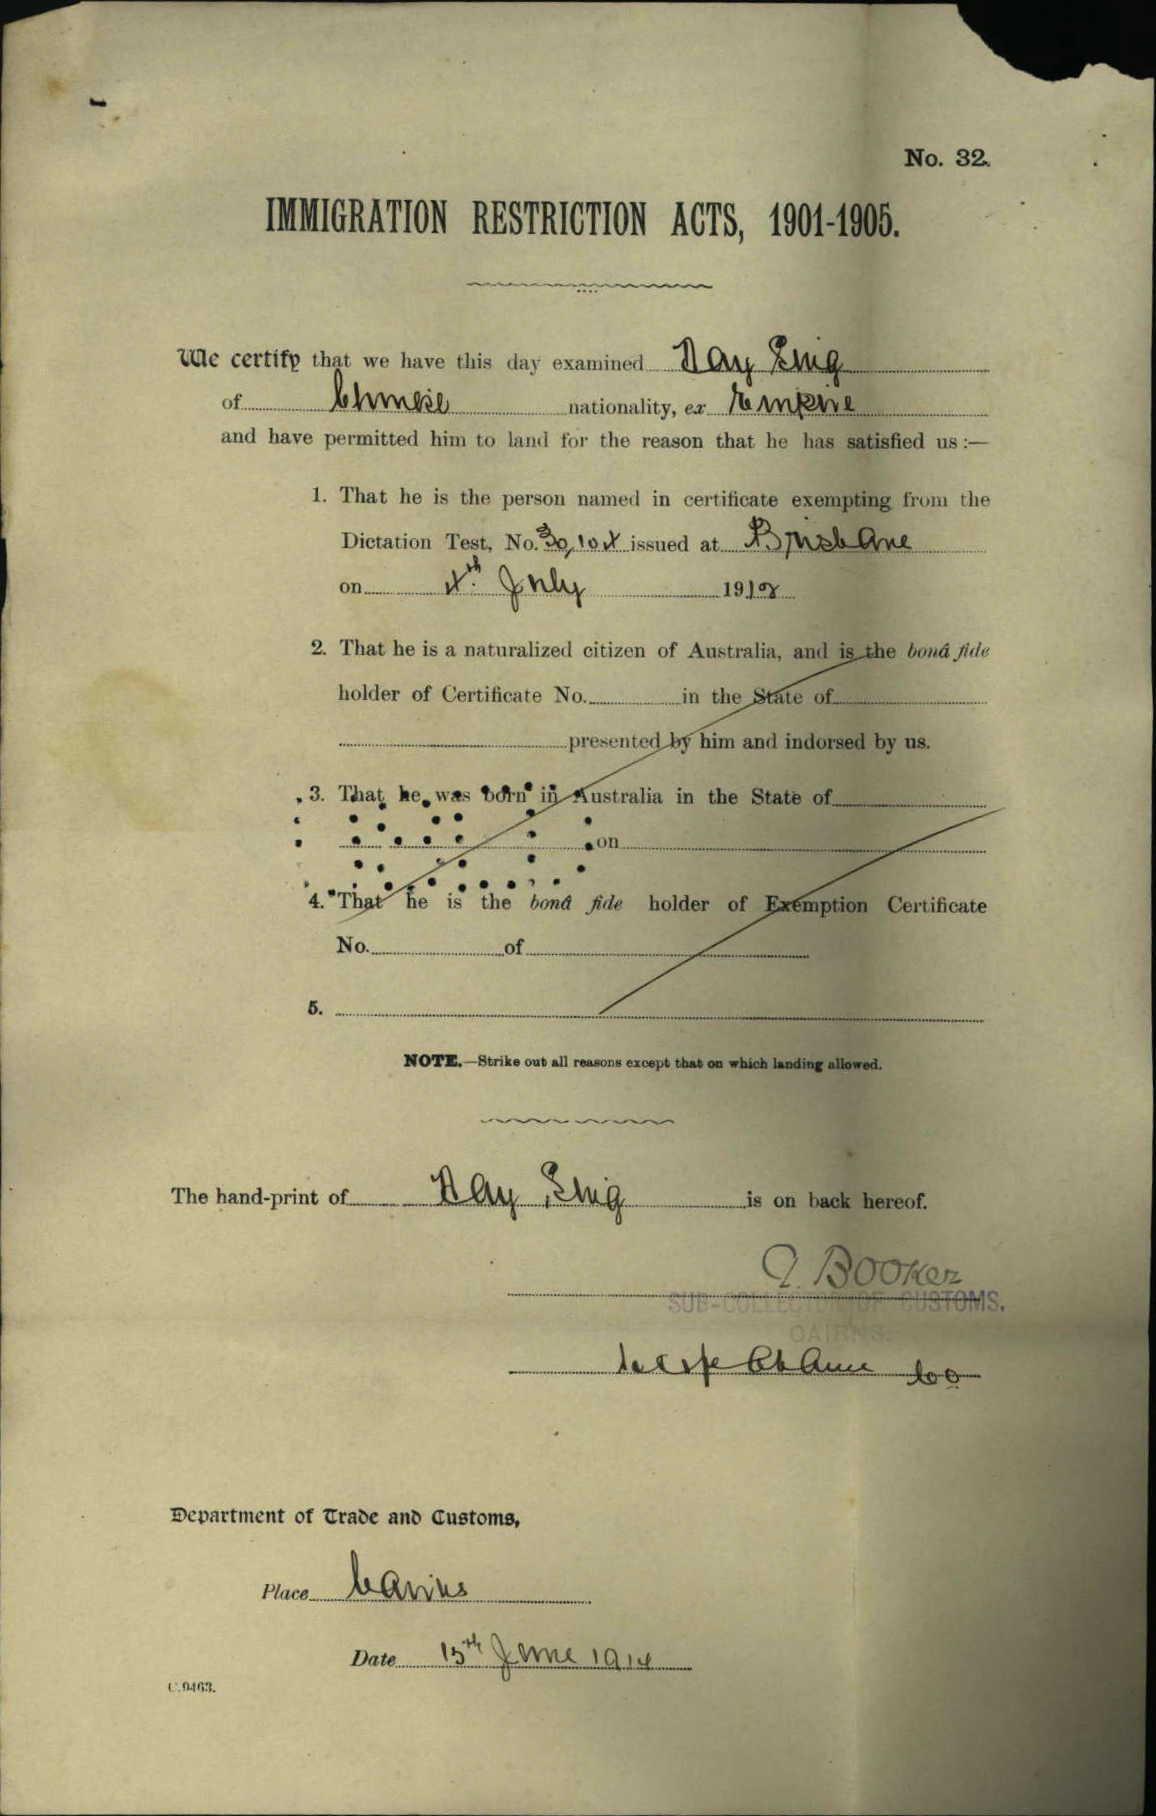 No. 32.
IMMIGRATION RESTRICTION ACTS, 1901-1905.
We certify that we have this day examined Day Sing
of Chinese nationality, ex Empire
and have permitted him to land for the reason that he has satisfied us :—
1. That he is the person named in certificate exempting from the
Dictation Test, No. issued at Brisbane
on 4th July 1912
2. That he is a naturalized citizen of Australia, and is the bonâ fide
holder of Certificate No. in the State of
presented by him and indorsed by us.
3. That he was born in Australia in the State of
on
4. That he is the bonâ fide holder of Exemption Certificate
No. of
5.
NOTE.—Strike out all reasons except that on which landing allowed.
The hand-print of Day Sing is on back hereof.
Booker
SUB-COLLECTOR OF CUSTOMS.
CAIRNS.
Department of Trade and Customs,
Place Cairns
Date 15th June 1914
C.9463.